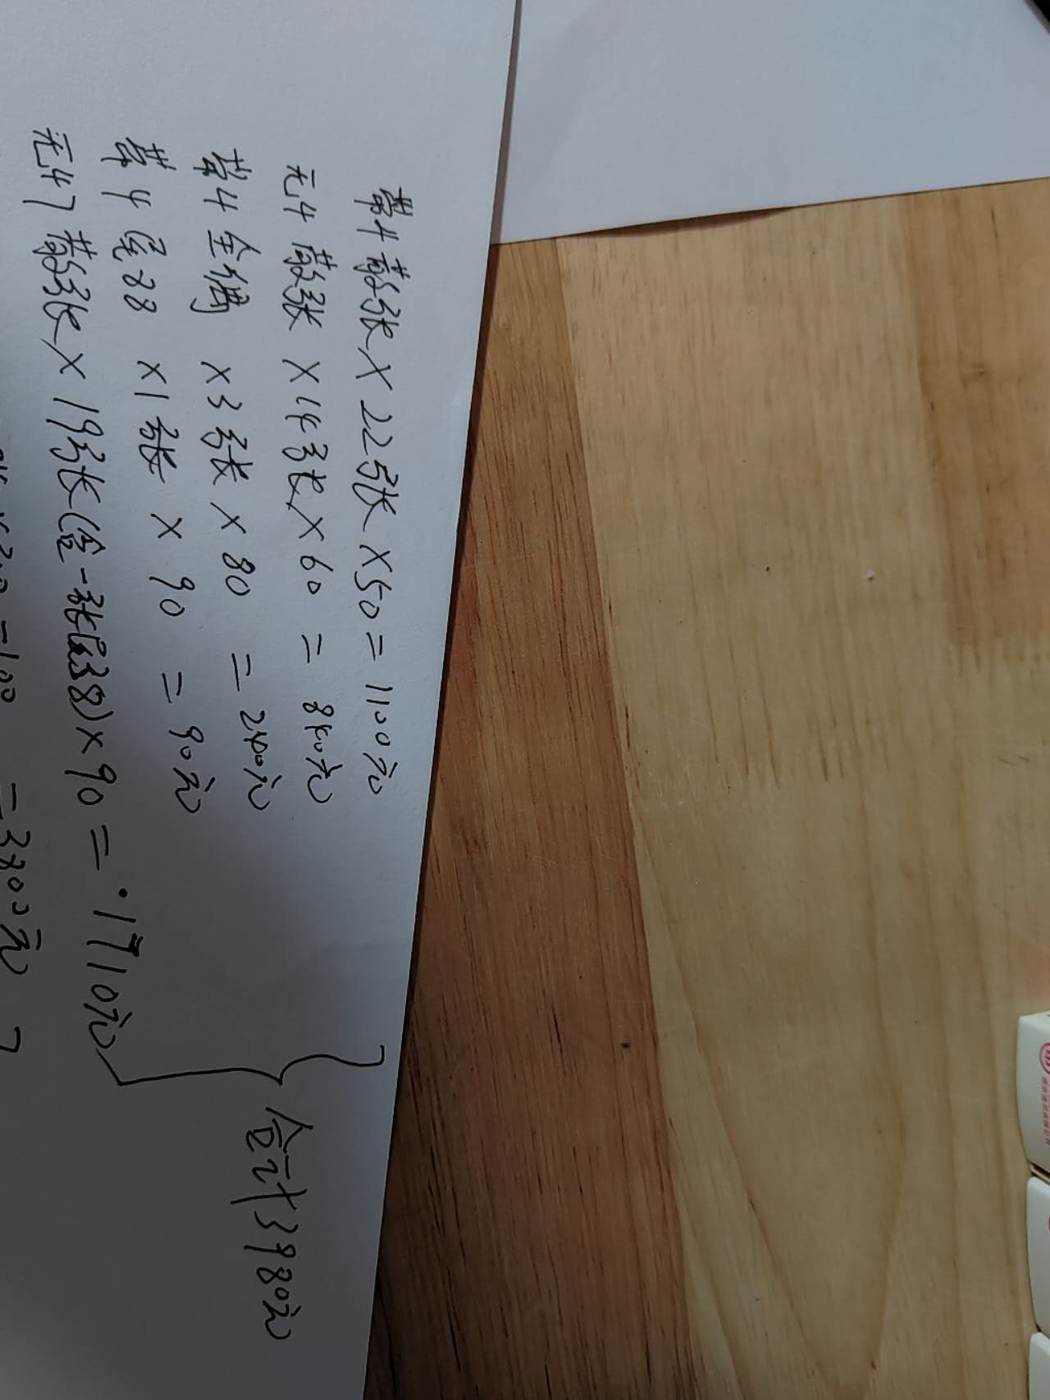 带4散张×22张×50=1100元
无4散张×14张×60=840元
带4全偶×3张×80=240元
带4尾88×1张×90=90元
无47散张×19张(含一张尾38)×90=1710元
合计3980元
=3800元